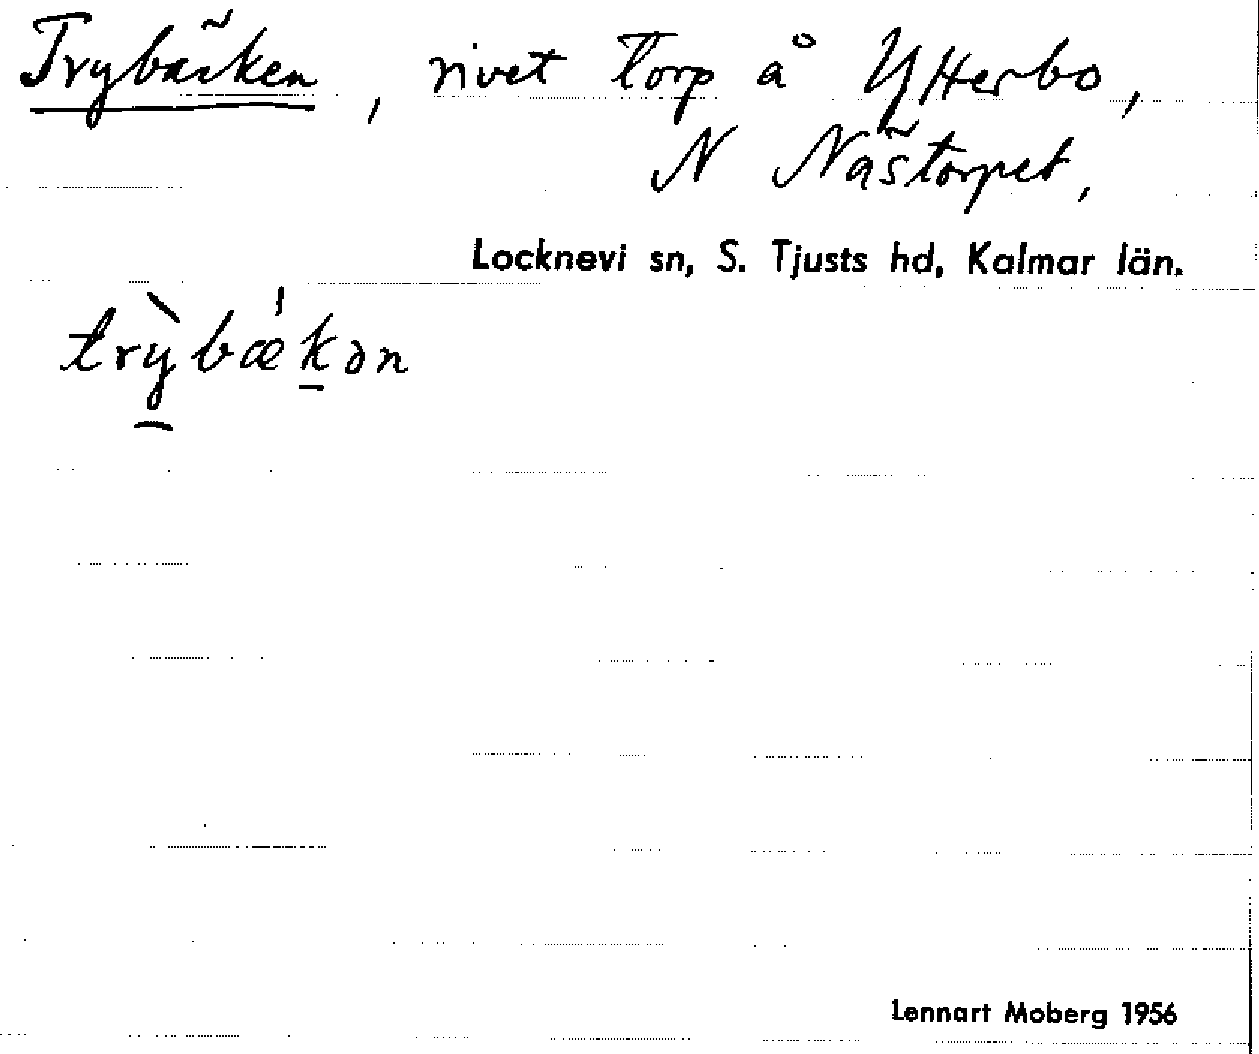 Trybäcken, rivet torp å Ytterbo,
N Nästorpet,
Locknevi sn, S. Tjusts hd, Kalmar län.
trỳbǽkən
Lennart Moberg 1956